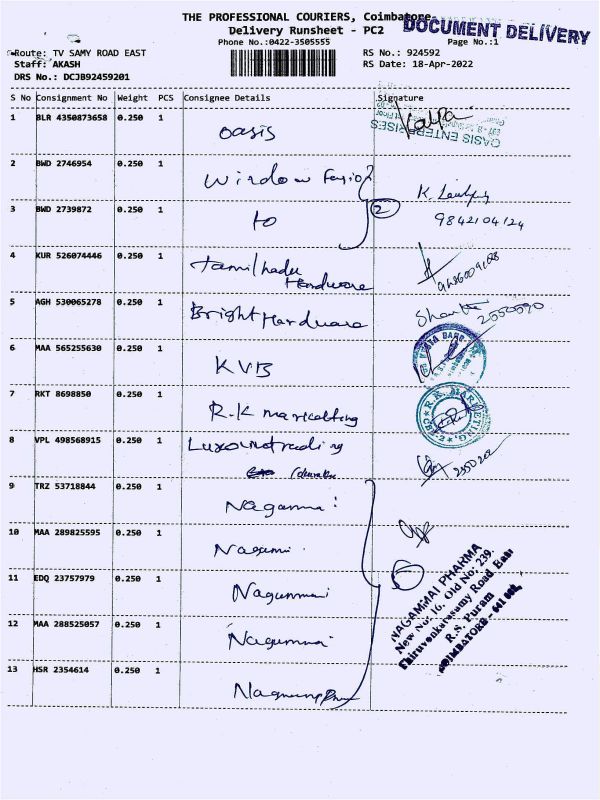 THE PROFESSIONAL COURIERS, Coimbatore
DOCUMENT DELIVERY
Delivery Runsheet - PC2
Phone No.:0422-3505555
Page No.:1
Route: TV SAMY ROAD EAST
RS No.: 924592
Staff: AKASH
RS Date: 18-Apr-2022
DRS No.: DCJB92459201
S No Consignment No Weight PCS Consignee Details Signature
1 BLR 4350873658 0.250 1 Oasis
OASIS ENTERPRISES
2 BWD 2746954 0.250 1 Window
3 BWD 2739872 0.250 1 to 2 K.
9842104124
4 KUR 526074446 0.250 1 Tamilnadu Hardware
5 AGH 530065278 0.250 1 Bright Hardware 2550590
6 MAA 565255630 0.250 1 KVB
7 RKT 8698850 0.250 1 R.K marketting
R.K. MARKETING
CBE-2
8 VPL 498568915 0.250 1
9 TRZ 53718844 0.250 1 Nagamma
10 MAA 289825595 0.250 1 Nagammi
11 EDQ 23757979 0.250 1 Nagunmai 5
12 MAA 288525057 0.250 1 Nagummai
13 HSR 2354614 0.250 1
NAGAMMAI PHARMA
New No: 16, Old No: 239,
Thiruvenkatasamy Road East
R.S. Puram
COIMBATORE - 641 002.